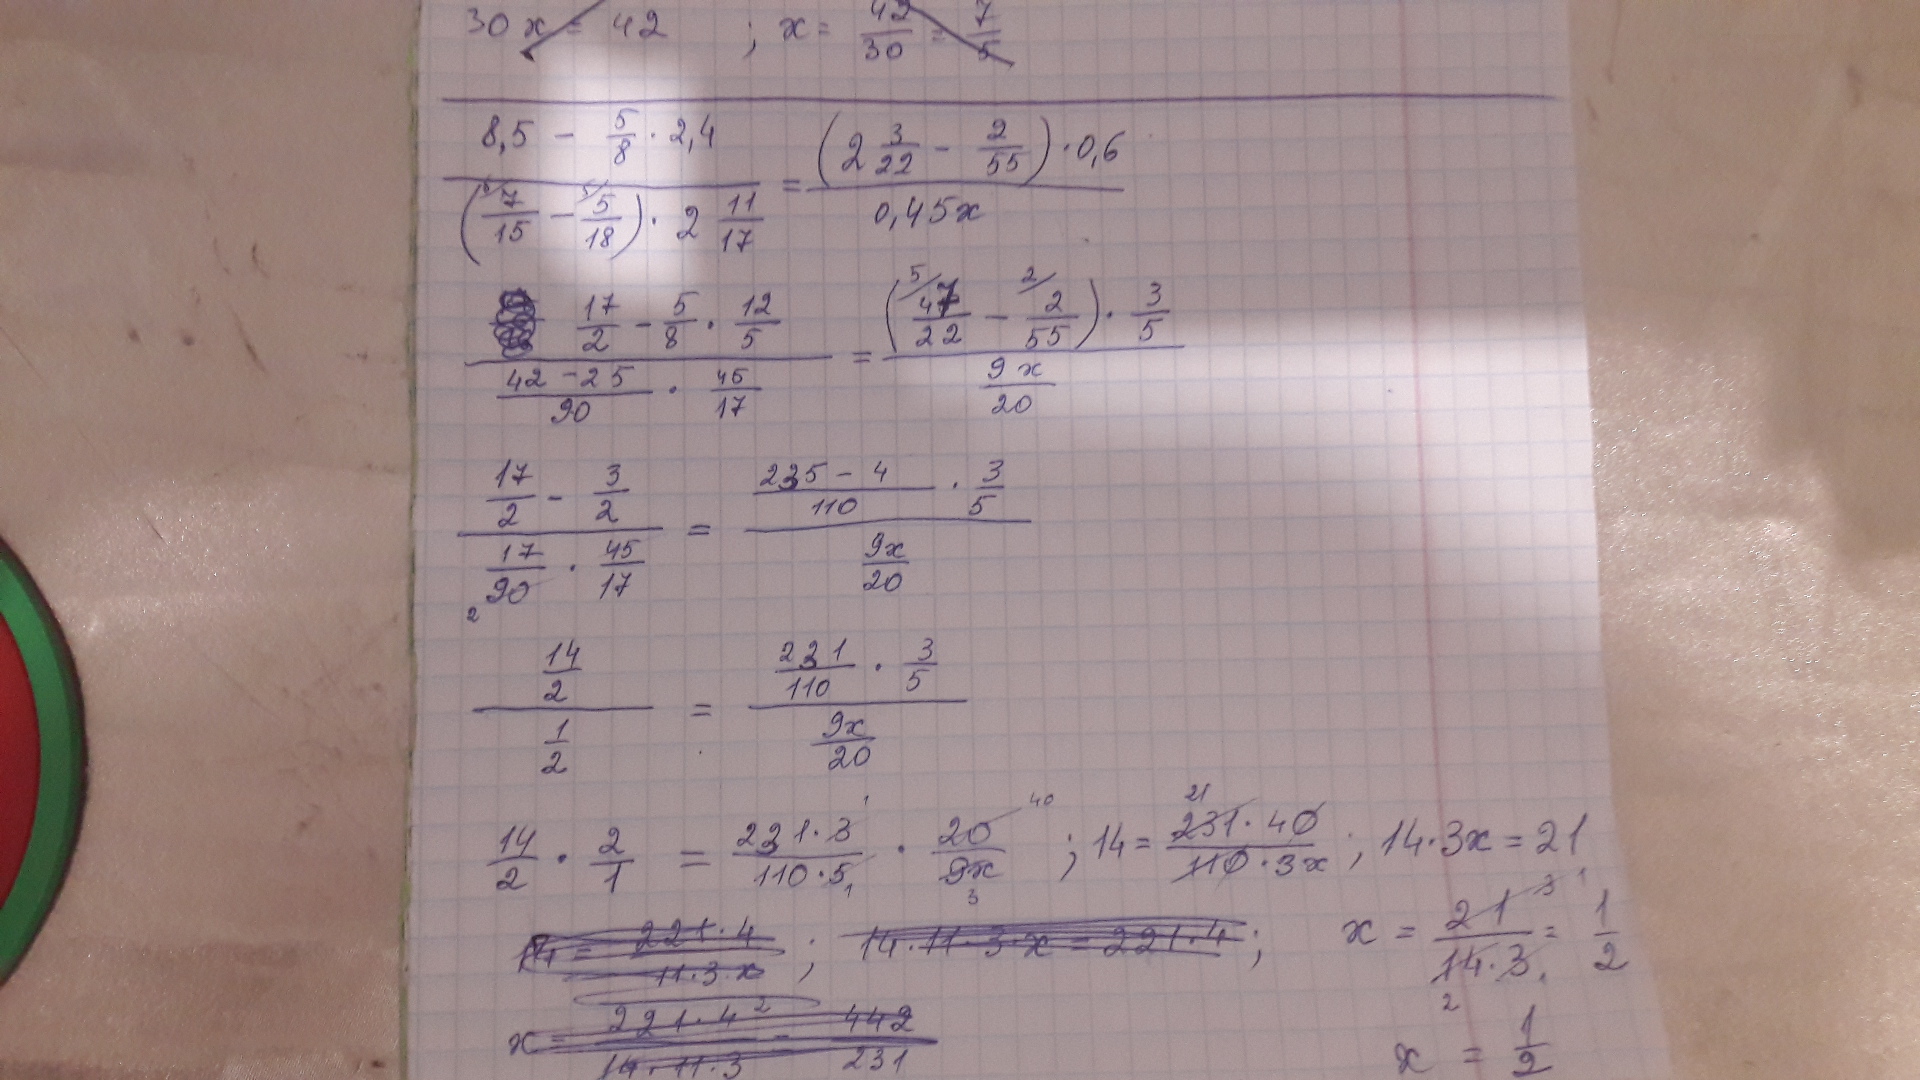 30x = 42 ; x = 42/30 = 7/5
(8,5 - 5/8 · 2,4) / ((7/15 - 5/18) · 2 11/17) = ((2 3/22 - 2/55) · 0,6) / (0,45x)
(17/2 - 5/8 · 12/5) / ((42 - 25)/90 · 45/17) = ((47/22 - 2/55) · 3/5) / (9x/20)
(17/2 - 3/2) / (17/90 · 45/17) = ((235 - 4)/110 · 3/5) / (9x/20)
(14/2) / (1/2) = (231/110 · 3/5) / (9x/20)
14/2 · 2/1 = (231 · 3)/(110 · 5) · 20/9x ; 14 = (231 · 40)/(110 · 3x) ; 14 · 3x = 21
14 = (221 · 4)/(11 · 3 · x) ; 14 · 11 · 3 · x = 221 · 4 ; x = 21/(14 · 3) = 1/2
x = (221 · 4)/(14 · 11 · 3) = 442/231 x = 1/2